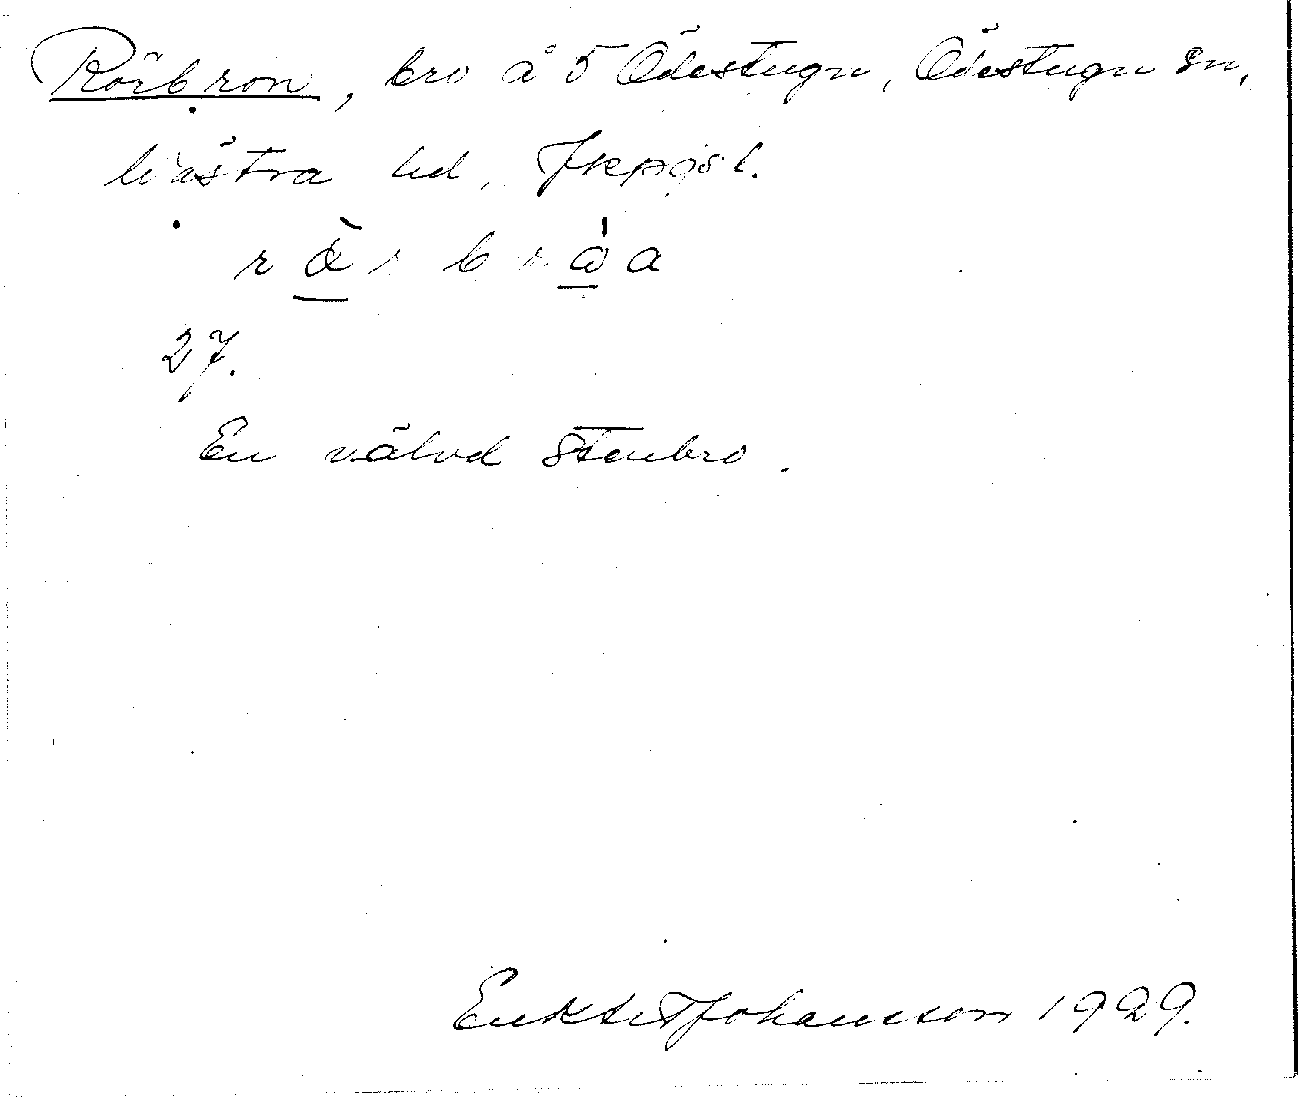 Rörbron, bro å 5 Ödestugu, Ödestugu sn,
Västra hd, Jkpgs l.
27.
En välvd stenbro.
Johansson 1929.